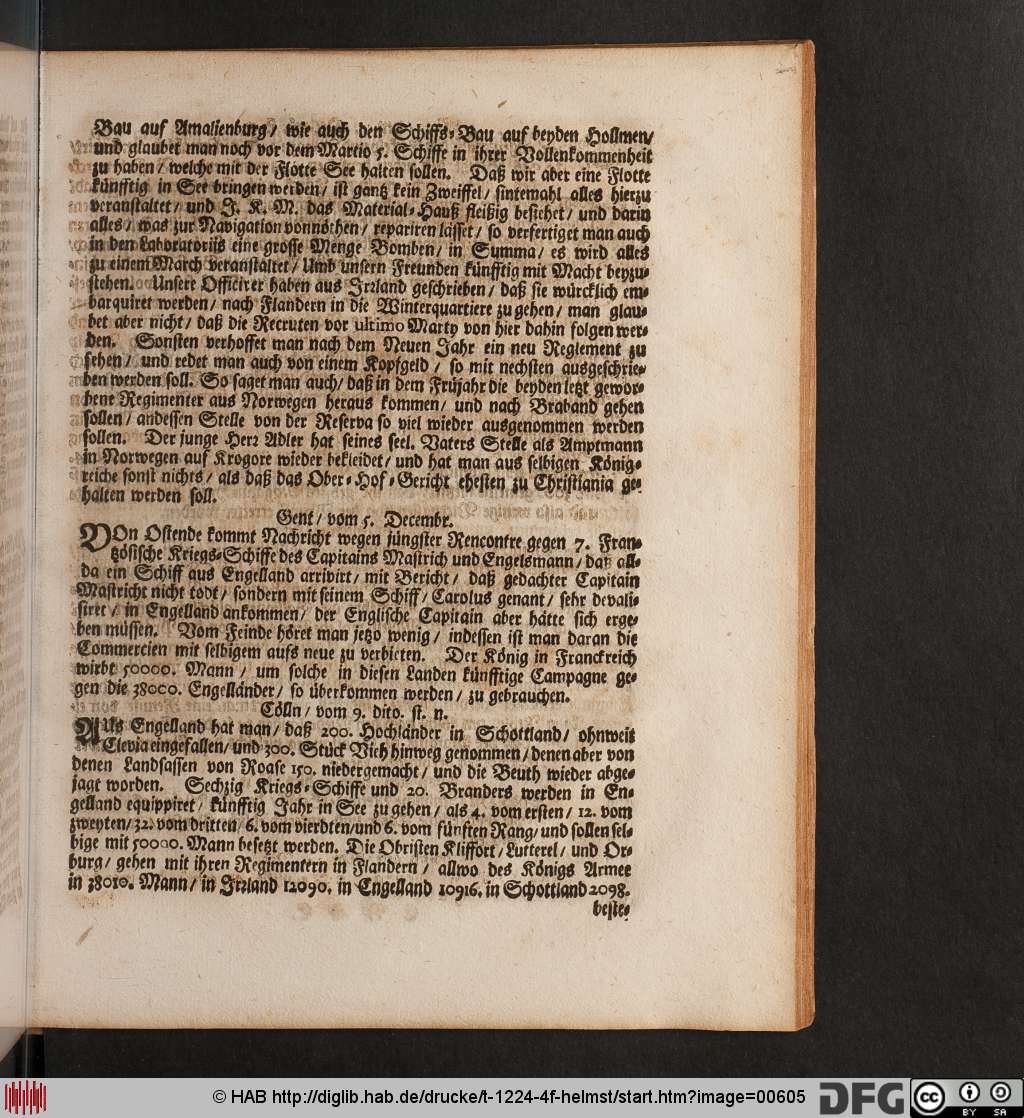 Bau auf Amalienburg/ wie auch den Schiffs-Bau auf beyden Hollmen/
und glaubet man noch vor dem Martio 5. Schiffe in ihrer Vollenkommenheit
zu haben/ welche mit der Flotte See halten sollen. Daß wir aber eine Flotte
künfftig in See bringen werden/ ist gantz kein Zweiffel/ sintemahl alles hierzu
veranstaltet/ und J. K. M. das Material-Hauß fleißig besiehet/ und darin
alles/ was zur Navigation vonnöthen/ repariren lässet/ so verfertiget man auch
in den Laboratoriis eine grosse Menge Bomben/ in Summa/ es wird alles
zu einem March veranstaltet/ Umb unsern Freunden künfftig mit Macht beyzu-
stehen. Unsere Officirer haben aus Irꝛland geschrieben/ daß sie würcklich em-
barquiret werden/ nach Flandern in die Winterquartiere zu gehen/ man glau-
bet aber nicht/ daß die Recruten vor ultimo Marty von hier dahin folgen wer-
den. Sonsten verhoffet man nach dem Neuen Jahr ein neu Reglement zu
sehen/ und redet man auch von einem Kopfgeld/ so mit nechsten ausgeschrie-
ben werden soll. So saget man auch/ daß in dem Frühjahr die beyden letzt gewor-
bene Regimenter aus Norwegen heraus kommen/ und nach Braband gehen
sollen/ an dessen Stelle von der Reserva so viel wieder ausgenommen werden
sollen. Der junge Herꝛ Adler hat seines seel. Vaters Stelle als Amptmann
in Norwegen auf Krogore wieder bekleidet/ und hat man aus selbigen König-
reiche sonst nichts/ als daß das Ober-Hof-Gericht ehesten zu Christiania ge-
halten werden soll.
Gent/ vom 5. Decembr.
VOn Ostende kommt Nachricht wegen jüngster Rencontre gegen 7. Fran-
tzösische Kriegs-Schiffe des Capitains Mastrich und Engelsmann/ daß all-
da ein Schiff aus Engelland arrivirt/ mit Bericht/ daß gedachter Capitain
Mastricht nicht todt/ sondern mit seinem Schiff/ Carolus genant/ sehr devali-
siret/ in Engelland ankommen/ der Englische Capitain aber hätte sich erge-
ben müssen. Vom Feinde höret man jetzo wenig/ indessen ist man daran die
Commercien mit selbigem aufs neue zu verbieten. Der König in Franckreich
wirbt 50000. Mann/ um solche in diesen Landen künfftige Campagne ge-
gen die 38000. Engelländer/ so überkommen werden/ zu gebrauchen.
Cölln/ vom 9. dito. st. n.
AUs Engelland hat man/ daß 200. Hochländer in Schottland/ ohnweit
Clevia eingefallen/ und 300. Stück Vieh hinweg genommen/ denen aber von
denen Landsassen von Roase 150. niedergemacht/ und die Beuth wieder abge-
jagt worden. Sechzig Kriegs-Schiffe und 20. Branders werden in En-
gelland equippiret/ künfftig Jahr in See zu gehen/ als 4. vom ersten/ 12. vom
zweyten/ 32. vom dritten/ 6. vom vierdten/ und 6. vom fünften Rang/ und sollen sel-
bige mit 50000. Mann besetzt werden. Die Obristen Kliffort/ Lutterel/ und Or-
burg/ gehen mit ihren Regimentern in Flandern/ allwo des Königs Armee
in 38010. Mann/ in Irꝛland 12090. in Engelland 10916. in Schottland 2098.
beste-
© HAB http://diglib.hab.de/drucke/t-1224-4f-helmst/start.htm?image=00605
DFG cc BY SA